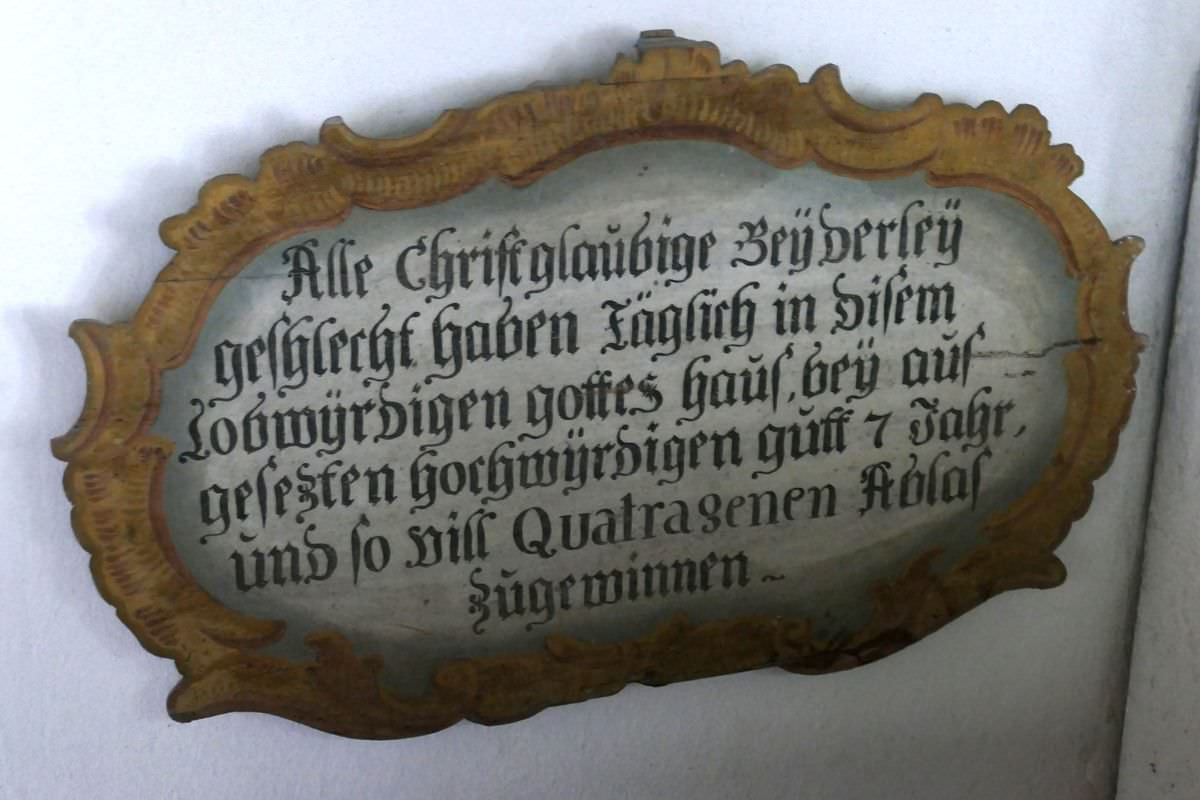 Alle Christglaŭbige Beÿderleÿ
geschlecht haben Täglich in disem
Lobwÿrdigen gottes haŭs, beÿ aŭs
gesezten hochwÿrdigen gŭtt 7 Jahr,
ŭnd so vill Quatragenen Ablas
zŭgewinnen ~